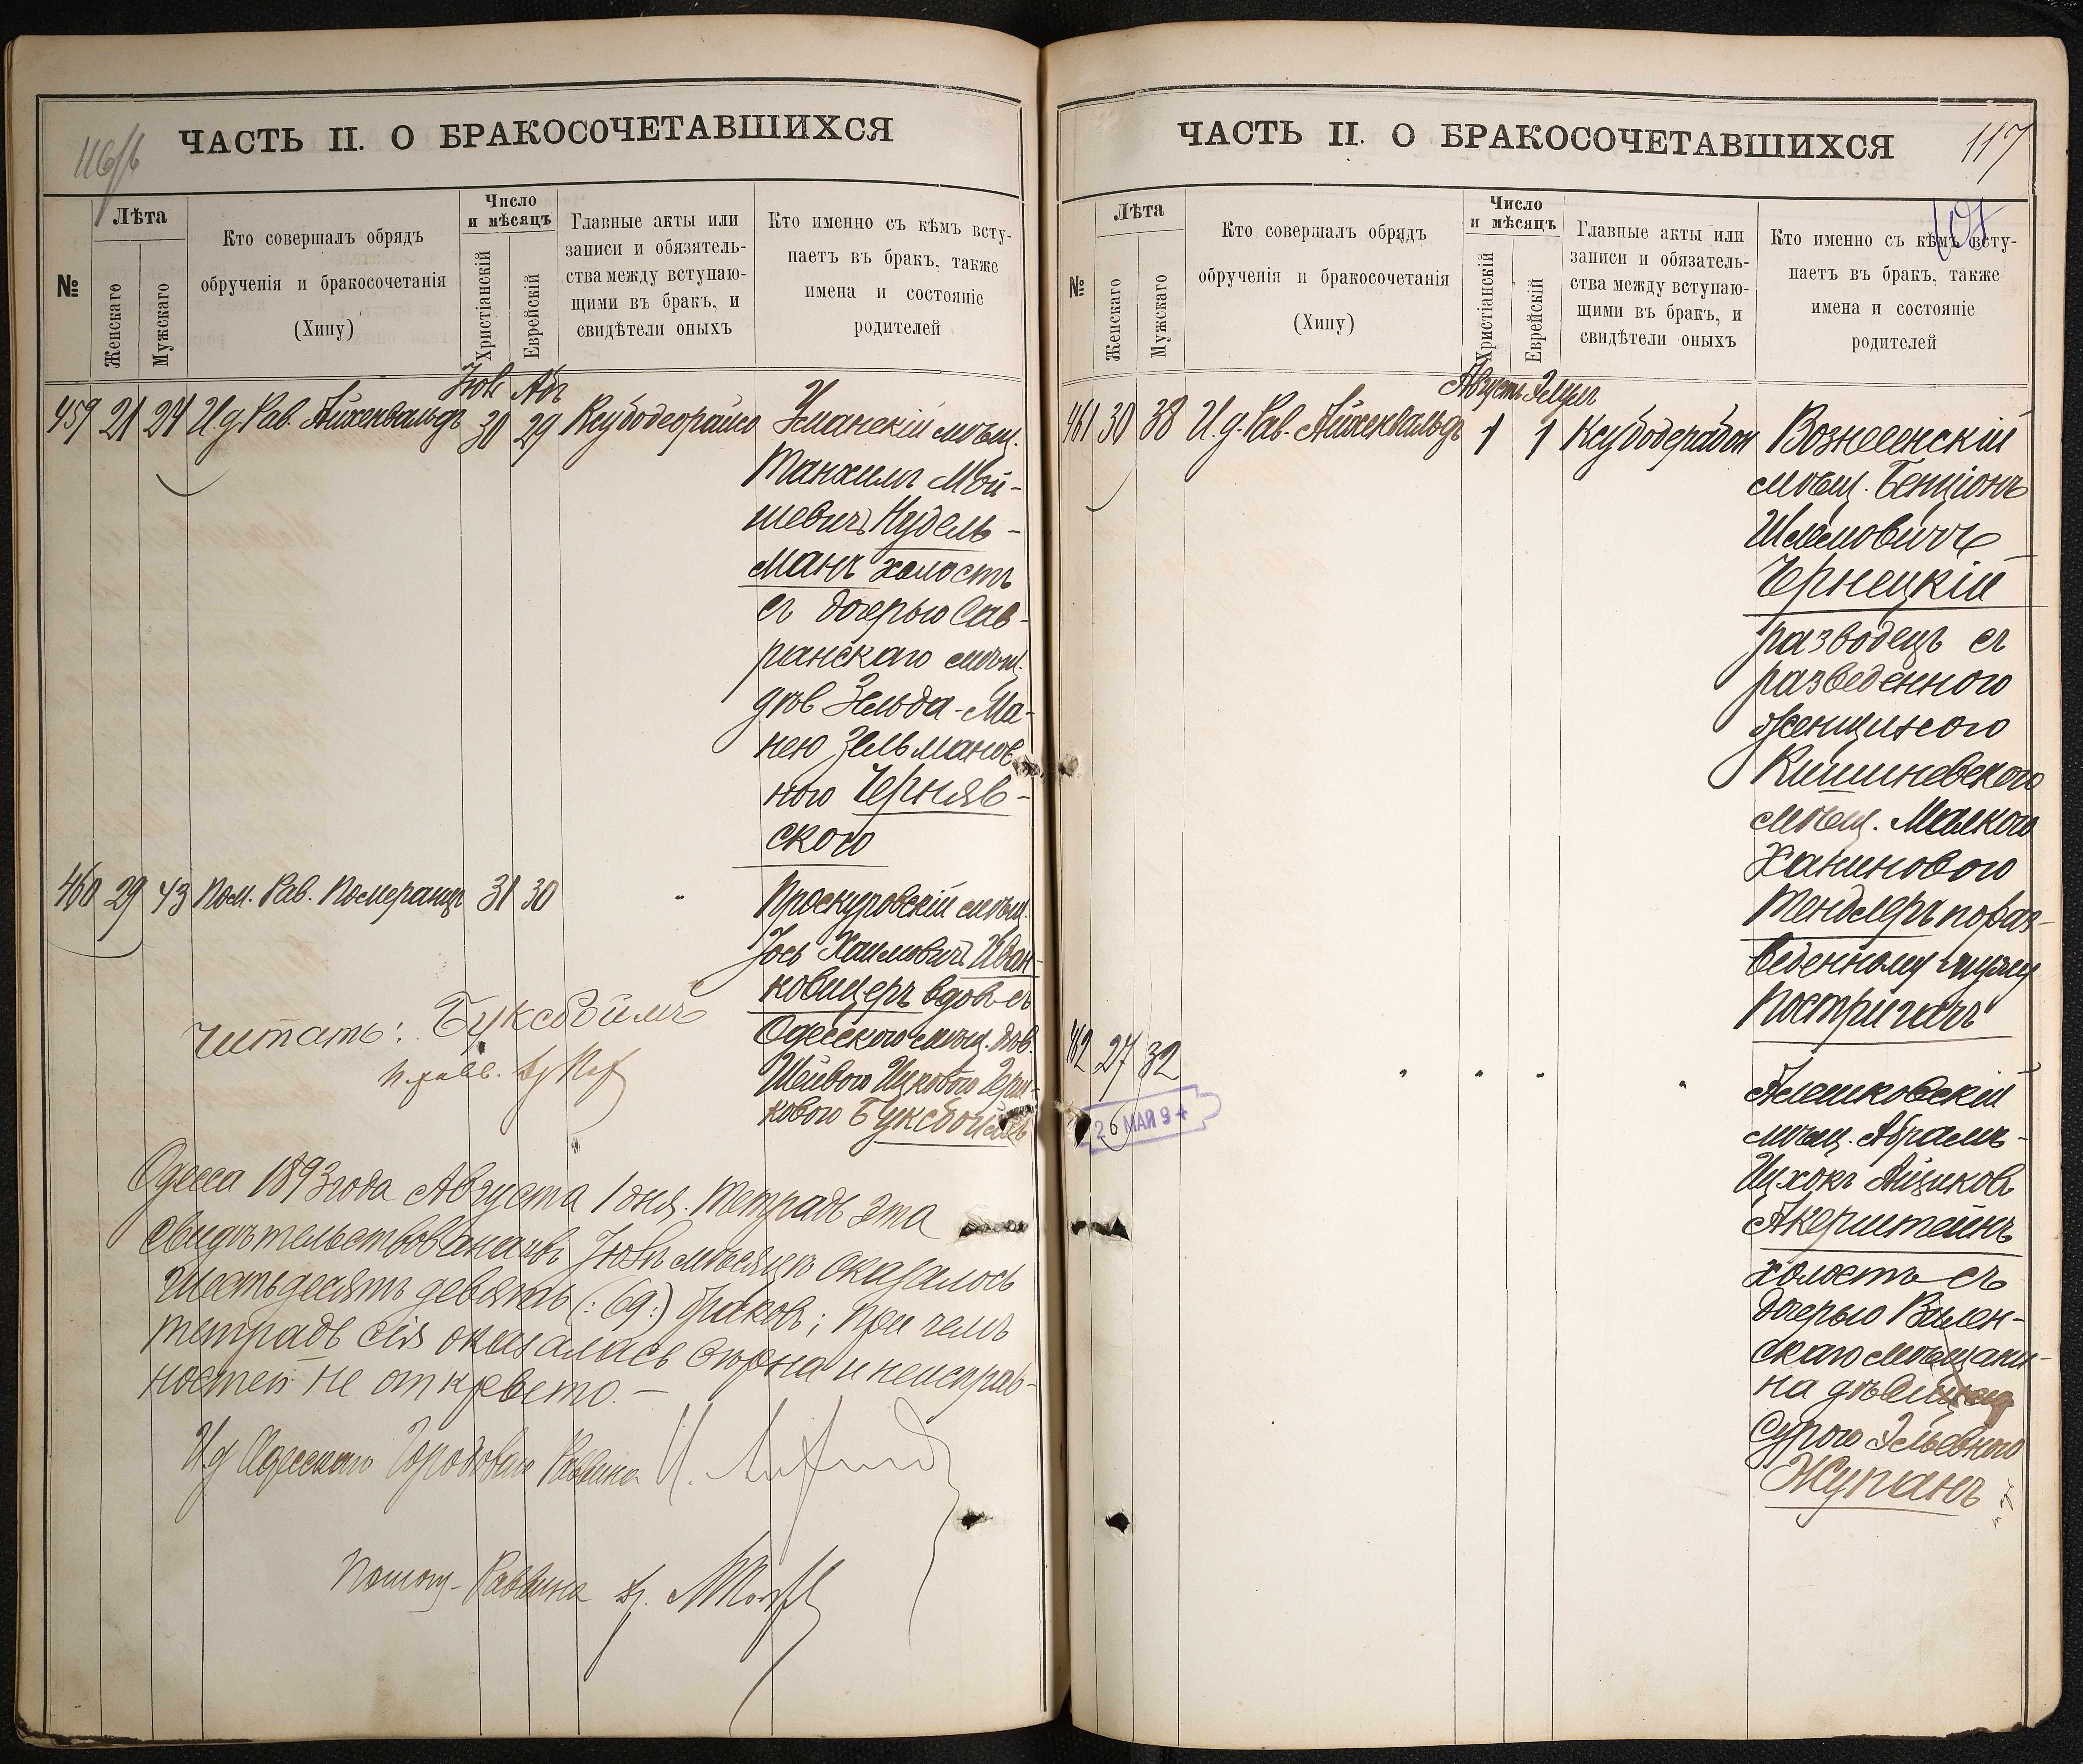 116/б
ЧАСТЬ II. О БРАКОСОЧЕТАВШИХСЯ
№
Лѣта
Женскаго
Мужскаго
Кто совершалъ обрядъ
обрученія и бракосочетанія
(Хипу)
Число
и мѣсяцъ
Христіанскій
Еврейскій
Главные акты или
записи и обязятель-
ства между вступаю-
щими въ бракъ, и
свидѣтели оныхъ
Кто именно съ кѣмъ всту-
паетъ въ бракъ, также
имена и состояніе
родителей
Іюль Абъ
459 21 24 И.д. Рав. Айхенвальдъ 30 29 Ксубодеорайсо Уманскій мѣщ.
Манхилъ Мой-
шевичъ Нудель-
манъ холостъ
съ дочерью Сав-
ранскаго мѣщ.
дѣв Зельда-Ма-
нею Зельманов
ною Чернявс-
ского
460 29 43 Пом. Рав. Померанцъ 31 30 „ Проскуровскій мѣщ.
Іось Хаимовичъ Иван-
ковицеръ вдов съ
Одесского мѣщ. вдов.
Шейвою Ицковою
ковою Буксбоймъ
читать: Буксбоймъ
Одесса 1893 года Августа 1 дня. Тетрадь эта
свидѣтельствована въ Іюль мѣсяцѣ оказалось
шестьдесятъ девять (:69:) браковъ; при чемъ
тетрадь сія оказалась вѣрна и неисправ-
ностей не открыто.—
И.д Одесскаго Городового Раввина
Помощ. Раввина др.
ЧАСТЬ II. О БРАКОСОЧЕТАВШИХСЯ
117
107
№
Лѣта
Женскаго
Мужскаго
Кто совершалъ обрядъ
обрученія и бракосочетанія
(Хипу)
Число
и мѣсяцъ
Христіанскій
Еврейскій
Главные акты или
записи и обязатель-
ства между вступаю-
щими въ бракъ, и
свидѣтели оныхъ
Кто именно съ кѣмъ всту-
паетъ въ бракъ, также
имена и состояніе
родителей
Августъ Элулъ
461 30 38 И.д. Рав. Айхенвальдъ 1 1 Ксубодерабон Вознесенскій
мѣщ. Бенціонъ
Шлемовичъ
Чернецкій
разводецъ съ
разведенною
женщиною
Кишиневскою
мѣщ. Малкою
Ханиновою
Тендлеръ по раз-
веденному мужу
Постригачъ
462 27 32 „ „ „ „ Алешковскій
мѣщ. Абрамъ-
Ицхокъ Айциковъ
Акерштейнъ
холостъ съ
дочерью Вилен-
скаго мѣщани-
на дѣвицею
Сурою Эльевною
Жупанъ
26 МАЙ 94